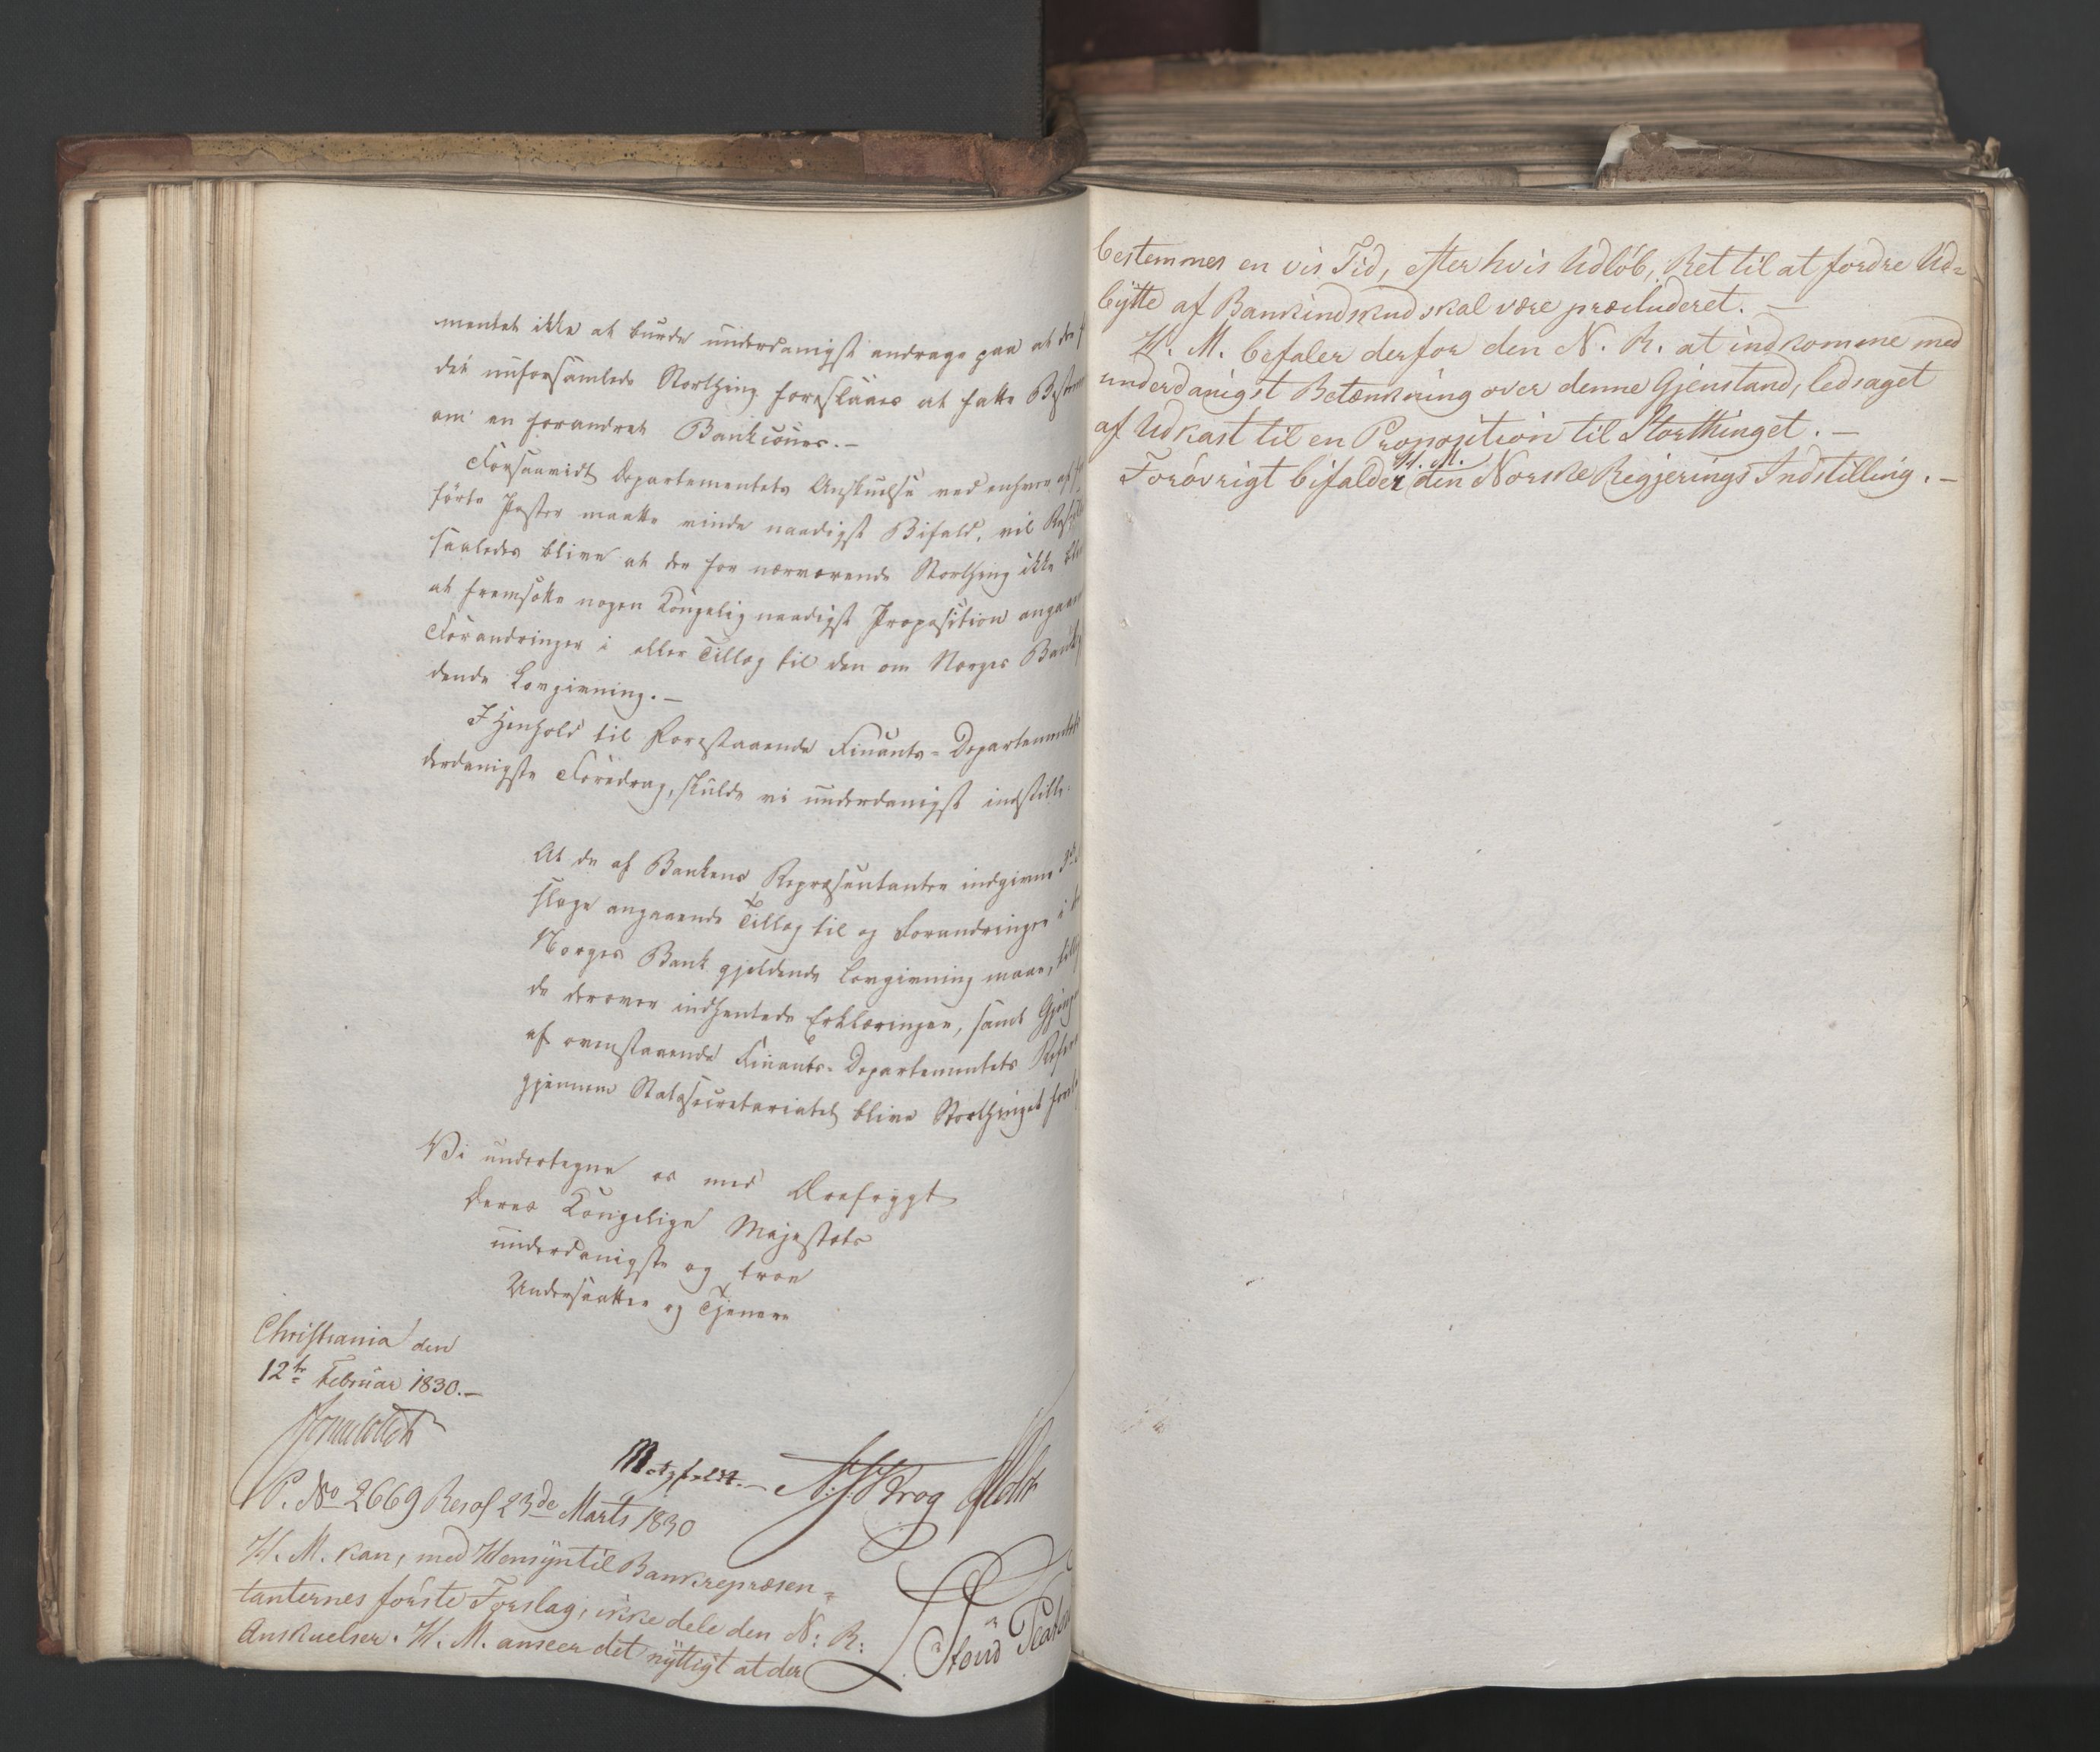 mentet ikke at burde underdanigst andrage paa at der
det nu forsamlede Storthing foreslaaes at fatte
om en forandret Bankcours.-
Forsaavidt Departementets Anskuelse ved enhver af
førte Poster maatte vinde naadigst Bifald, vil
saaledes blive at der for nærværende Storthing ikke
at fremsætte nogen Kongelig naadigst Proposition
Forandringer i eller Tillæg til den om Norges
dende Lovgivning.-
I Henhold til Forestaaende Finants-Departementets
derdanigste Foredrag, skulde vi underdanigst indstille:
At de af Bankens Repræsentanter indgivne
slage angaaende Tillæg til og Forandringer i
Norges Bank gjeldende Lovgivning maae,
de derover indhentede Erklæringer, samt
af ovenstaaende Finants-Departementets
gjennem Statssecretariatet blive Storthinget
Vi undertegne os med Ærefrygt
Deres Kongelige Majestæts
underdanigste og troe
Undersaatter og Tjenere
Christiania den
12te Februar 1830.-
Motzfeldt.- Krog Holst
P. No 2669 Res of 23de Marts 1830
H. M. kan, med Hensÿn til Bankrepræsen=
tanternes første Forslag, ikke dele den N: R:
Anskuelser. H. M. anseer det nÿttigt at der
bestemmes en vis Tid, efter hvis Udløb, Ret til at fordre Ud=
bÿtte af Bankindskud skal være præcluderet.-
H. M. befaler derfor den N. R. at indkomme med
underdanigst Betænkning over denne Gjenstand, ledsaget
af Udkast til en Proposition til Storthinget.-
H. M.
Forøvrigt bifalder den Norske Regjerings Indstilling.-